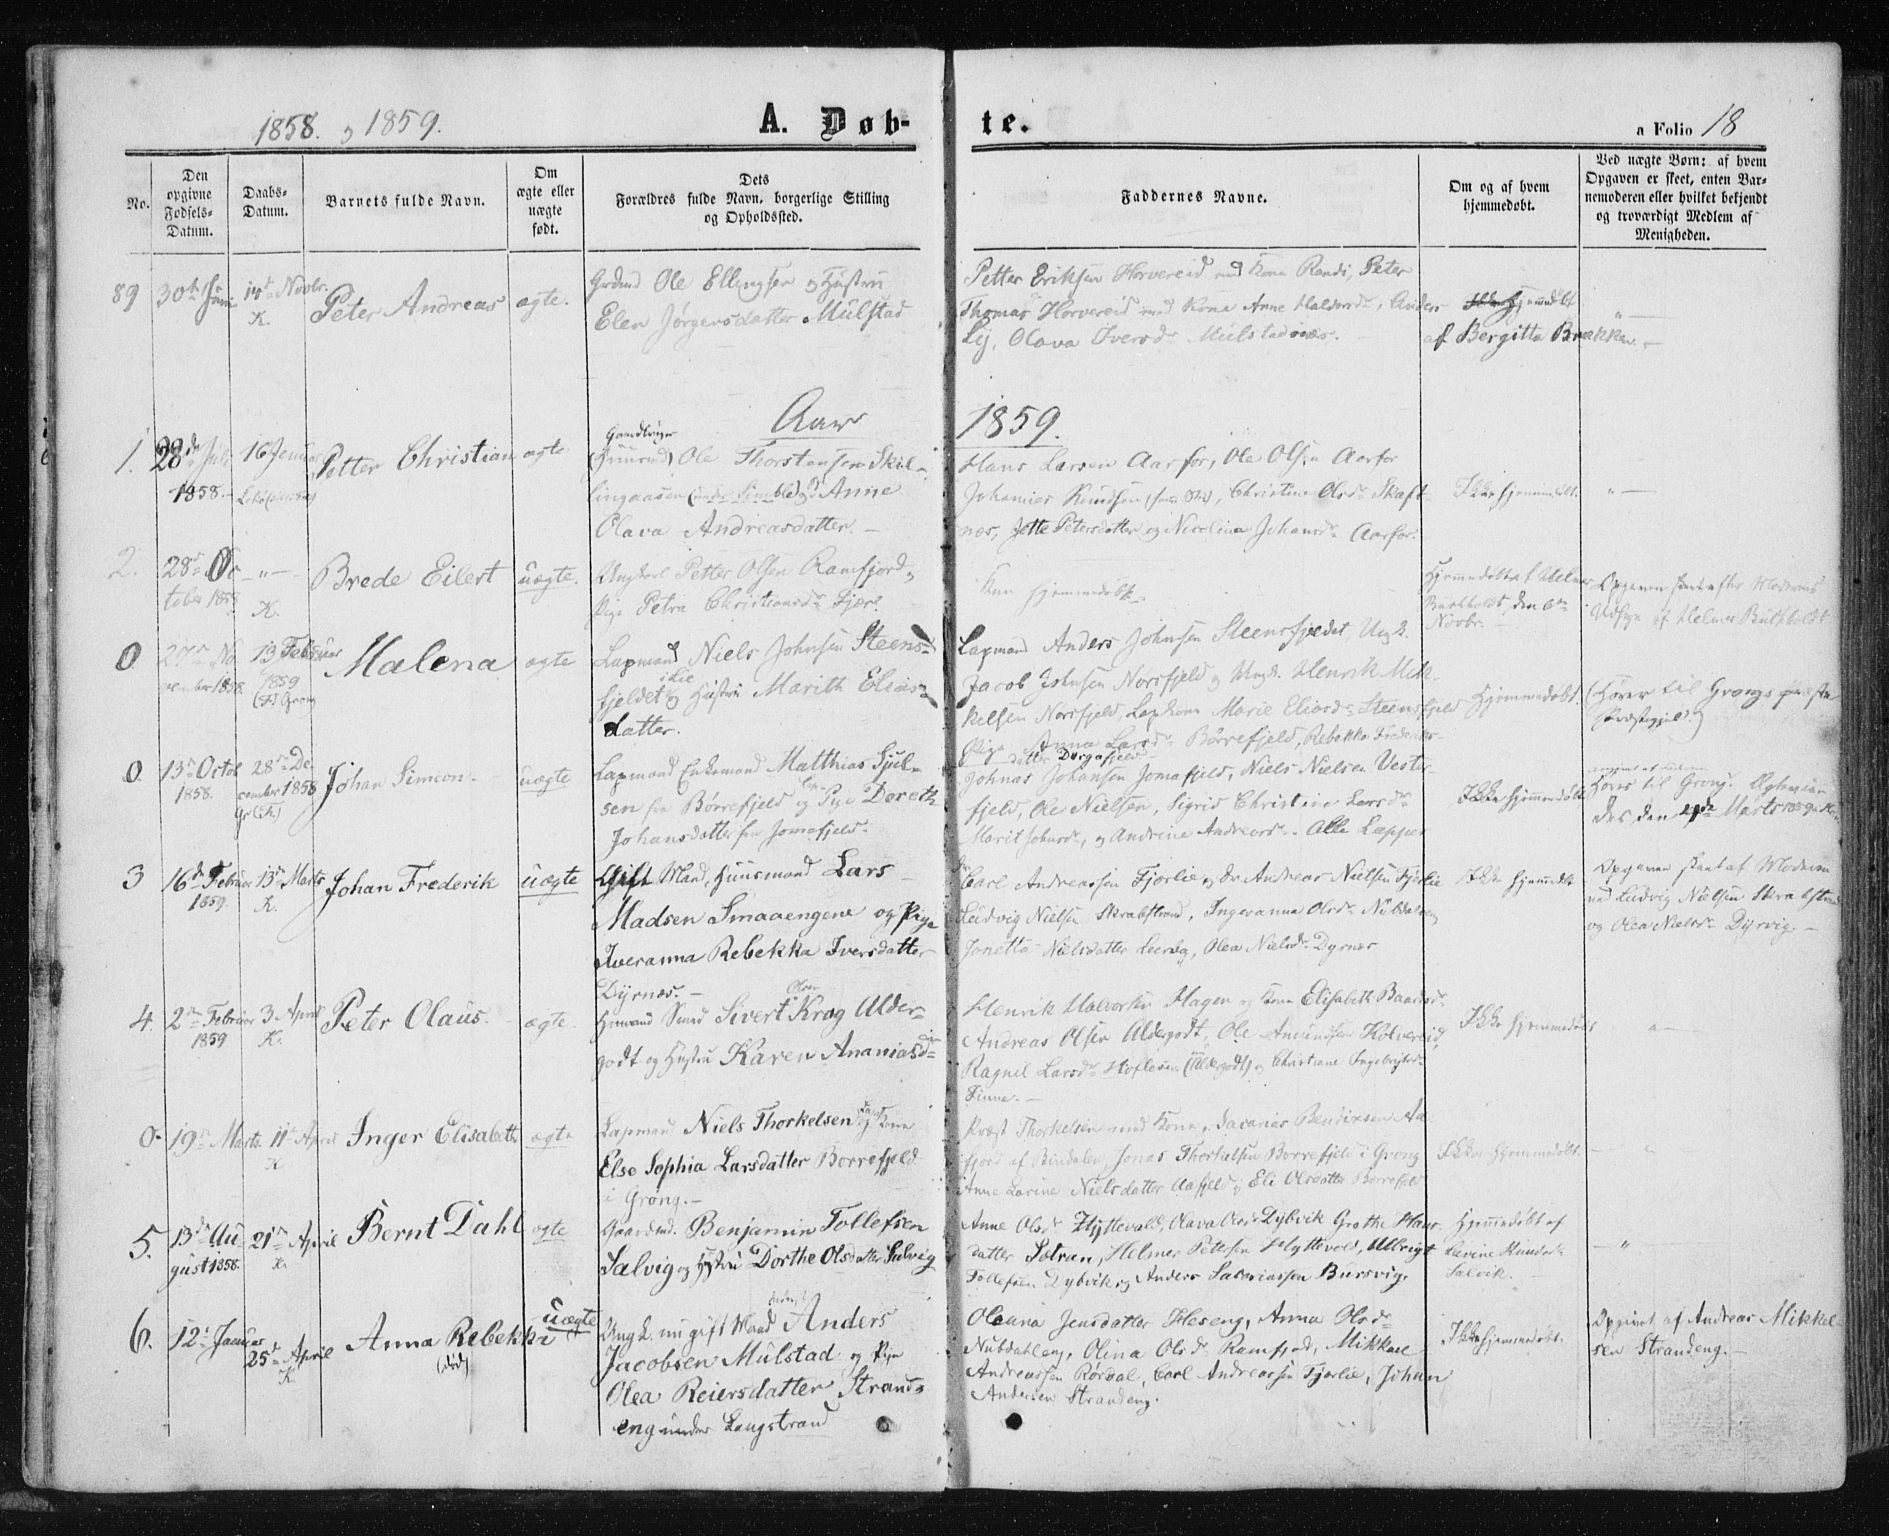 1858. og 1859.
A. Døb-
te.
a Folio 18
No.
Den opgivne Fødsels-Datum.
Daabs-Datum.
Barnets fulde Navn.
Om ægte eller uægte født.
Dets Forældres fulde Navn, borgerlige Stilling og Opholdssted.
Faddernes Navne.
Om og af hvem hjemmedøbt.
Ved uægte Børn: af hvem Opgaven er skeet, enten Barnemoderen eller hvilket bekjendt og troværdigt Medlem af Menigheden.
89 30te Juni 14de Novbr. K. Peter Andreas ægte.
Grdmd Ole Ellingsen og Hustru
Elen Jørgensdatter Mulstad
Petter Eriksen Horvereid med Kone Randi, Peter
Thomas Horvereid med Kone Anne Haldorsdr, Anders
Ly, Olava Iversdr Mulstadnæs.
Hjemmedøbt
af Bergitta Brækken.
Aar 1859.
1. 28de Juli 1858 16 Januar Petter Christian ægte
Ole Thorstensen Skil-
lingaasen og Anne
Olava Andreasdatter.
Hans Larsen Aarfor, Ole Olsen Aarfor
Johannes Knudsen, Christine Olsdr Skaft
næs, Jette Petersdatter og Nicolina Johansdr Aarfor.
Ikke hjemmedøbt.
2. 28de October 1858 K. Brede Eilert uægte.
Ungkarl Petter Olsen Ramfjord og
Pige Petra Christiansdr Fjær.
Kun hjemmedøbt.
Hjemmedøbt af Helmer
Buchholdt, den 6te
Novbr.
Opgaven skeet efter Moderens
Udsagn af Helmer Buchholdt
0 November 1858. 13 Februar 1859 Grong Malena ægte
Lapmand Niels Johnsen Steens-
fjeldet og Hustru Marith Elias-
datter.
Lapmand Anders Johnsen Steensfjeldet, Ungk.
Jacob Johnsen Norsfjeld og Ungk. Henrik Mik-
kelsen Norsfjeld, Lapkone Marie Eliasdr Steensfjeld
Pige Anna Larsdr Børrefjeld, Rebekka Frederiks-
datter Dørgafjeld
Hjemmedøbt.
(Hører til Grongs
Præstegjeld.)
0. 13de Octob 1858. 28de December 1858 Johan Simeon. uægte
Lapmand Enkemand Matthias Sjul-
sen fra Børrefjeld og Pige Doreth
Johansdatter fra Jomafjeld.
Johnas Johansen Jomafjeld, Niels Nielsen Vester-
fjeld, Ole Nielsen, Sigrid Christine Larsdr
Marit Johnsdr, og Andrine Andreasdr. Alle Lapper
Ikke hjemmedøbt
Hører til Grong.
den Marts 1859
3 16de Februar 1859. 13de Marts K. Johan Frederik uægte
Gift Mand, Huusmand Lars
Madsen Smaaengene og Pige
Iveranna Rebekka Iversdatter
Dyrnæs.
Carl Andreassen Fjørlie og Andreas Nielsen Fjørlie
Ludvig Nielsen Skrabstrand, Ingeranna Olsdr Nubdaleng
Jonetta Nielsdatter Leirvig, Olea Nielsdr Dyrnæs
Ikke hjemmedøbt
Opgaven skeet af Moderen
ved Ludvig Nielsen Skrabstrand
og Olea Nielsdr Dyrvig.
4. 2den Februar 1859 3 April K. Peter Olaus. ægte.
Smed Sivert Olsen Krog Alder-
godt og Hustru Karen Ananiasdr
Henrik Halvorsen Hagen og Kone Elisabeth Baardsdr
Andreas Olsen Aldergodt, Ole Amundsen Kolvereid,
Ragnil Larsdr Hoflesen (Aldergodt) og Christiane Ingebrigtsdr
Finne.
Ikke hjemmedøbt
0. 19de Marts 11te April K Inger Elisabeth ægte
Lapmand Niels Thorkelsen og Kone
Else Sophia Larsdatter Børrefjeld
i Grong.
Thorkelsen med Kone, Zacarias Bendixsen Aa-
fjord af Bindalen, Jonas Thorkelsen Borrefjeld i Grong
Anne Larine Nielsdatter Aafjeld, Eli Olsdatter Børrefjeld
Ikke hjemmedøbt.
5. 13de August 1858. 21de April K. Bernt Dahl ægte
Gaardmd. Benjamin Tollefsen
Salvig og Hustru Dorthe Olsdatter Salvig
Anne Olsdr Hyttevald, Olava Olsdr Dybvik Grethe Hans-
datter Sætran, Helmer Petersen Hyttevold, Ulbrigt
Tollefsen Dybvik og Anders Sacariassen Bursvig.
Hjemmedøbt af
Salvik.
6. 12te Januar 25de April K Anna Rebekka (død) uægte
Ungk. nu gift Mand Anders
Jacobsen Mulstad og Pige
Olea Reiersdatter Strand-
eng under Langstrand
Oleana Jensdatter Heseng, Anna Olsdr
Nubdahleng, Olina Olsdr Ramfjord, Mikkal
Andreassen Rørval, Carl Andreassen Fjørlie, Johan
Andersen Strandeng.
Ikke hjemmedøbt.
Opgivet af Andreas Mikkel
sen Strandeng.